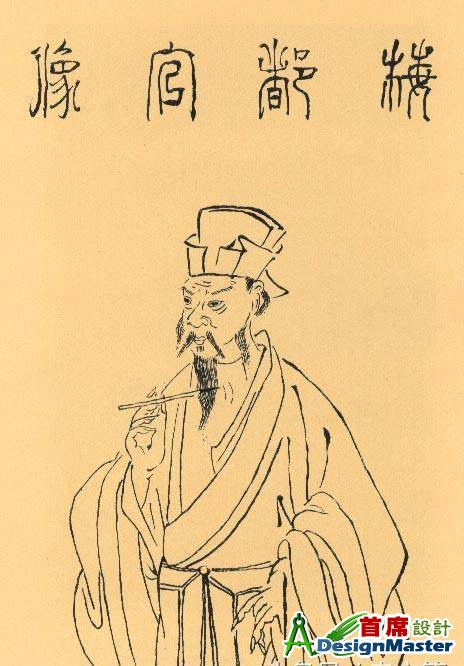 梅都官像
首席設計
DesignMaster